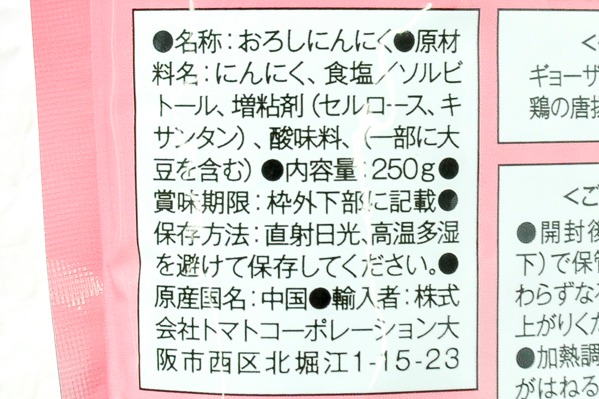 ●名称：おろしにんにく●原材
料名：にんにく、食塩／ソルビ
トール、増粘剤（セルロース、キ
サンタン）、酸味料、（一部に大
豆を含む）●内容量：250g●
賞味期限：枠外下部に記載●
保存方法：直射日光、高温多湿
を避けて保存してください。●
原産国名：中国●輸入者：株式
会社トマトコーポレーション大
阪市西区北堀江1-15-23
ギョーザ
鶏の唐揚
＜ご
●開封後
下）で保管
わらずな
上がりくだ
●加熱調
がはねる